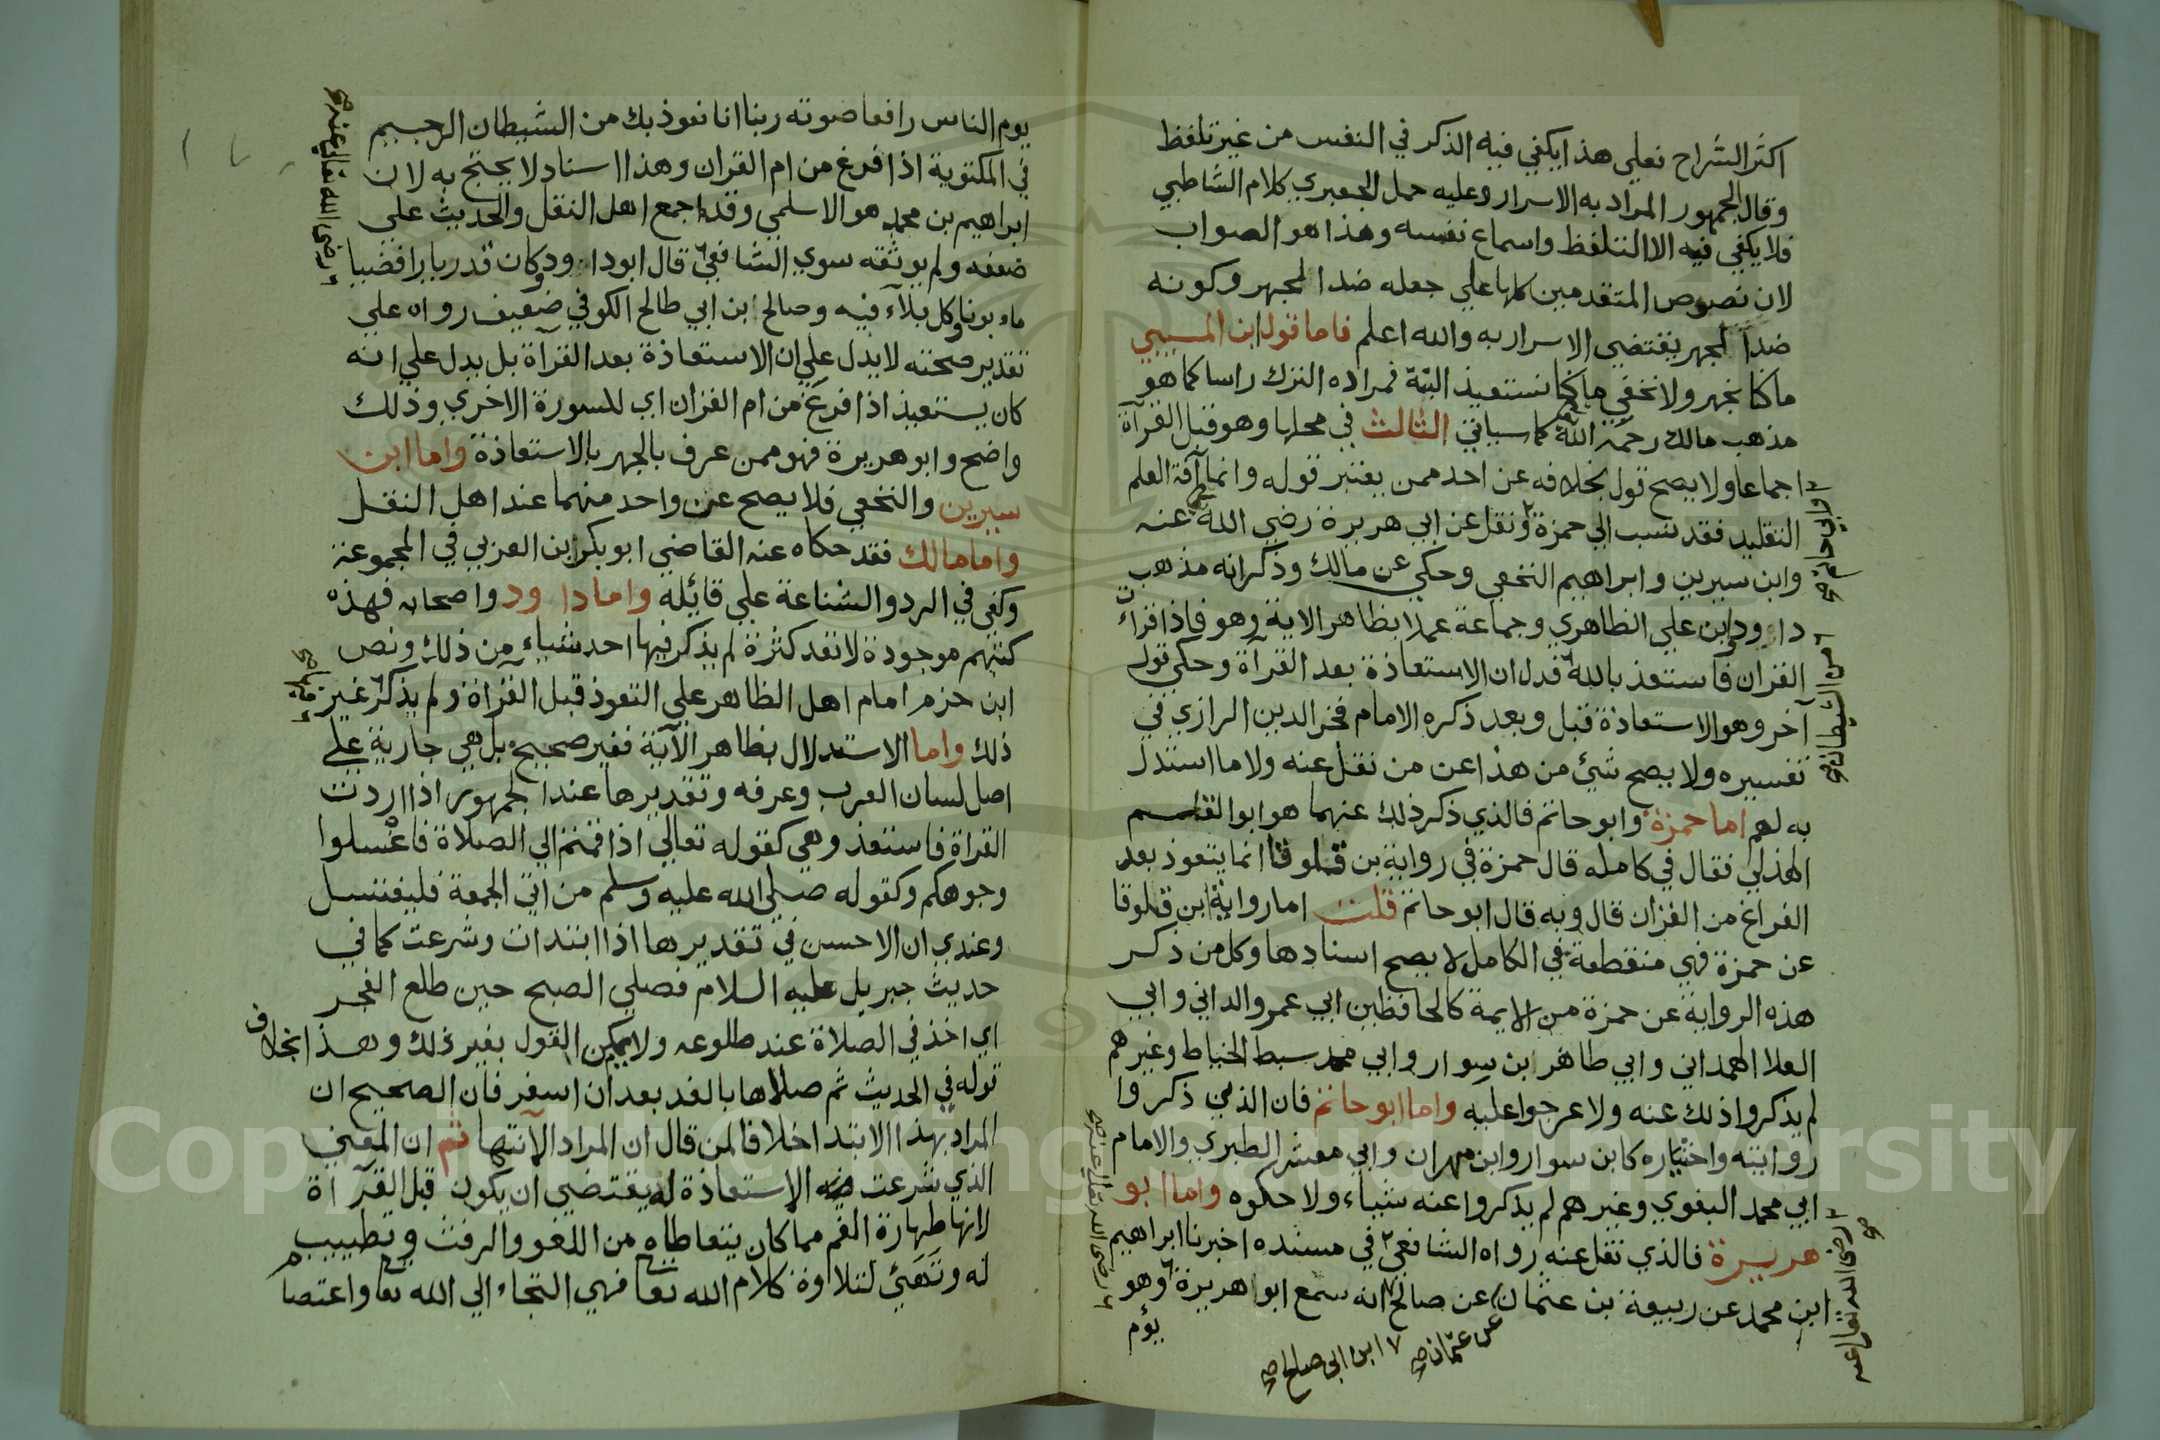 اكثر الشراح فعلى هذا يكفي فيه الذكر في النفس من غير تلفظ
وقال الجمهور المراد به الاسرار وعليه حمل الجعبري كلام الشاطبي
فلا يكفي فيه الا التلفظ واسماع نفسه وهذا هو الصواب
لان نصوص المتقدمين كلها على جعله ضدا لجهر وكونه
ضدا لجهر يقتضي الاسرار به والله اعلم فاما قول ابن المسيبي
ما كنا نجهر ولا نخفي ما كنا نستعيذ البتة فمراده الترك راسا كما هو
مذهب مالك رحمه الله كما سياتي الثالث في محلها وهو قبل القرآة
اجماعا ولا يصح قول بخلافه عن احد ممن يعتبر قوله وانما آفة العلم
التقليد فقد نسب الي حمزة ونقل عن ابي هريرة رضي الله عنه
وابي حاتم صح
وابن سيرين وابراهيم النخعي وحكي عن مالك وذكر انه مذهب
داود ابن علي الظاهري وجماعة عملا بظاهر الاية وهو فاذا قرات
القران فاستعذ بالله فدل ان الاستعاذة بعد القرآة وحكي قول
من الشيطان صح
آخر وهو الاستعاذة قبل وبعد ذكره الامام فخر الدين الرازي في
تفسيره ولا يصح شئ من هذا عن من نقل عنه ولا ما استدل
به لهم اما حمزة وابو حاتم فالذي ذكر ذلك عنهما هو ابو القاسم
الهذلي فقال في كامله قال حمزة في رواية بن قلوقا انما يتعوذ بعد
الفراغ من القران قال وبه قال ابو حاتم قلت اما رواية ابن قلوقا
عن حمزة فهي منقطعة في الكامل لا يصح اسنادها وكل من ذكر
هذه الرواية عن حمزة من الايمة كالحافظين ابي عمرو الداني وابي
العلا الهمداني وابي طاهر ابن سوار وابي محمد سبط الخياط وغيرهم
لم يذكروا ذلك عنه ولا عرجوا عليه واما ابو حاتم فان الذين ذكروا
روايته واختياره كابن سوار وابن مهران وابي معشر الطبري والامام
ابي محمد البغوي وغيرهم لم يذكروا عنه شياء ولا حكوه واما ابو
هريرة فالذي نقل عنه رواه الشافعي في مسنده اخبرنا ابراهيم
رضي الله تعالى عنه صح
رضي الله تعالى عنه
ابن محمد عن ربيعة بن عثمان عن صالح انه سمع ابوا هريرة وهو
عن عثمان صح
ابن ابي صلح صح
يؤم
يوم الناس رافعا صوته ربنا انا نعوذ بك من الشيطان الرجيم
في المكتوبة اذا فرغ من ام القران وهذا اسناد لا يحتج به لان
ابراهيم بن محمد هو الاسلمي وقد اجمع اهل النقل والحديث على
ضعفه ولم يوثقه سوي الشافعي قال ابوداود وكان قدريا رافضيا
رضي الله تعالى عنه صح
مابونا وكل بلآء فيه وصالح ابن ابي طالح الكوفي ضعيف رواه علي
تقدير صحته لا يدل علي ان الاستعاذة بعد القرآة بل يدل علي انه
كان يستعيذ اذا فرغ من ام القران اي للسورة الاخري وذلك
واضح وابو هريرة فهو ممن عرف بالجهر بالاستعاذة واما ابن
سيرين والنخعي فلا يصح عن واحد منهما عند اهل النقل
واما مالك فقد حكاه عنه القاضي ابو بكر ابن العربي في المجموعة
وكفى في الرد والشناعة على قائله واما داود واصحابه فهذه
كتبهم موجودة لا تعد كثرة لم يذكر فيها احد شياء من ذلك ونص
ابن حزم امام اهل الظاهر علي التعوذ قبل القراة ولم يذكر غير
ذلك واما الاستدلال بظاهر الآية فغير صحيح بل هي جارية علي
اصل لسان العرب وعرفه وتقديرها عند الجمهور اذا اردت
القراة فاستعذ وهي كقوله تعالي اذا قمتم الي الصلاة فاغسلوا
وجوهكم وكقوله صلي الله عليه وسلم من اتي الجمعة فليغتسل
وعندي ان الاحسن في تقديرها اذا ابتدات وشرعت كما في
حديث جبريل عليه السلام فصلي الصبح حين طلع الفجر
اي اخذ في الصلاة عند طلوعه ولا يمكن القول بغير ذلك وهذا بخلاف
قوله في الحديث ثم صلاها بالغد بعد ان اسفر فان الصحيح ان
المراد بهذا الابتدا خلافا لمن قال ان المراد الانتها ثم ان المعني
الذي شرعت الاستعاذة له يقتضي ان يكون قبل القرآة
لانها طهارة الفم مما كان يتعاطاه من اللغو والرفث وتطييب
له وتهيئ لتلاوة كلام الله تعا فهي التجاء الي الله تعا واعتصام